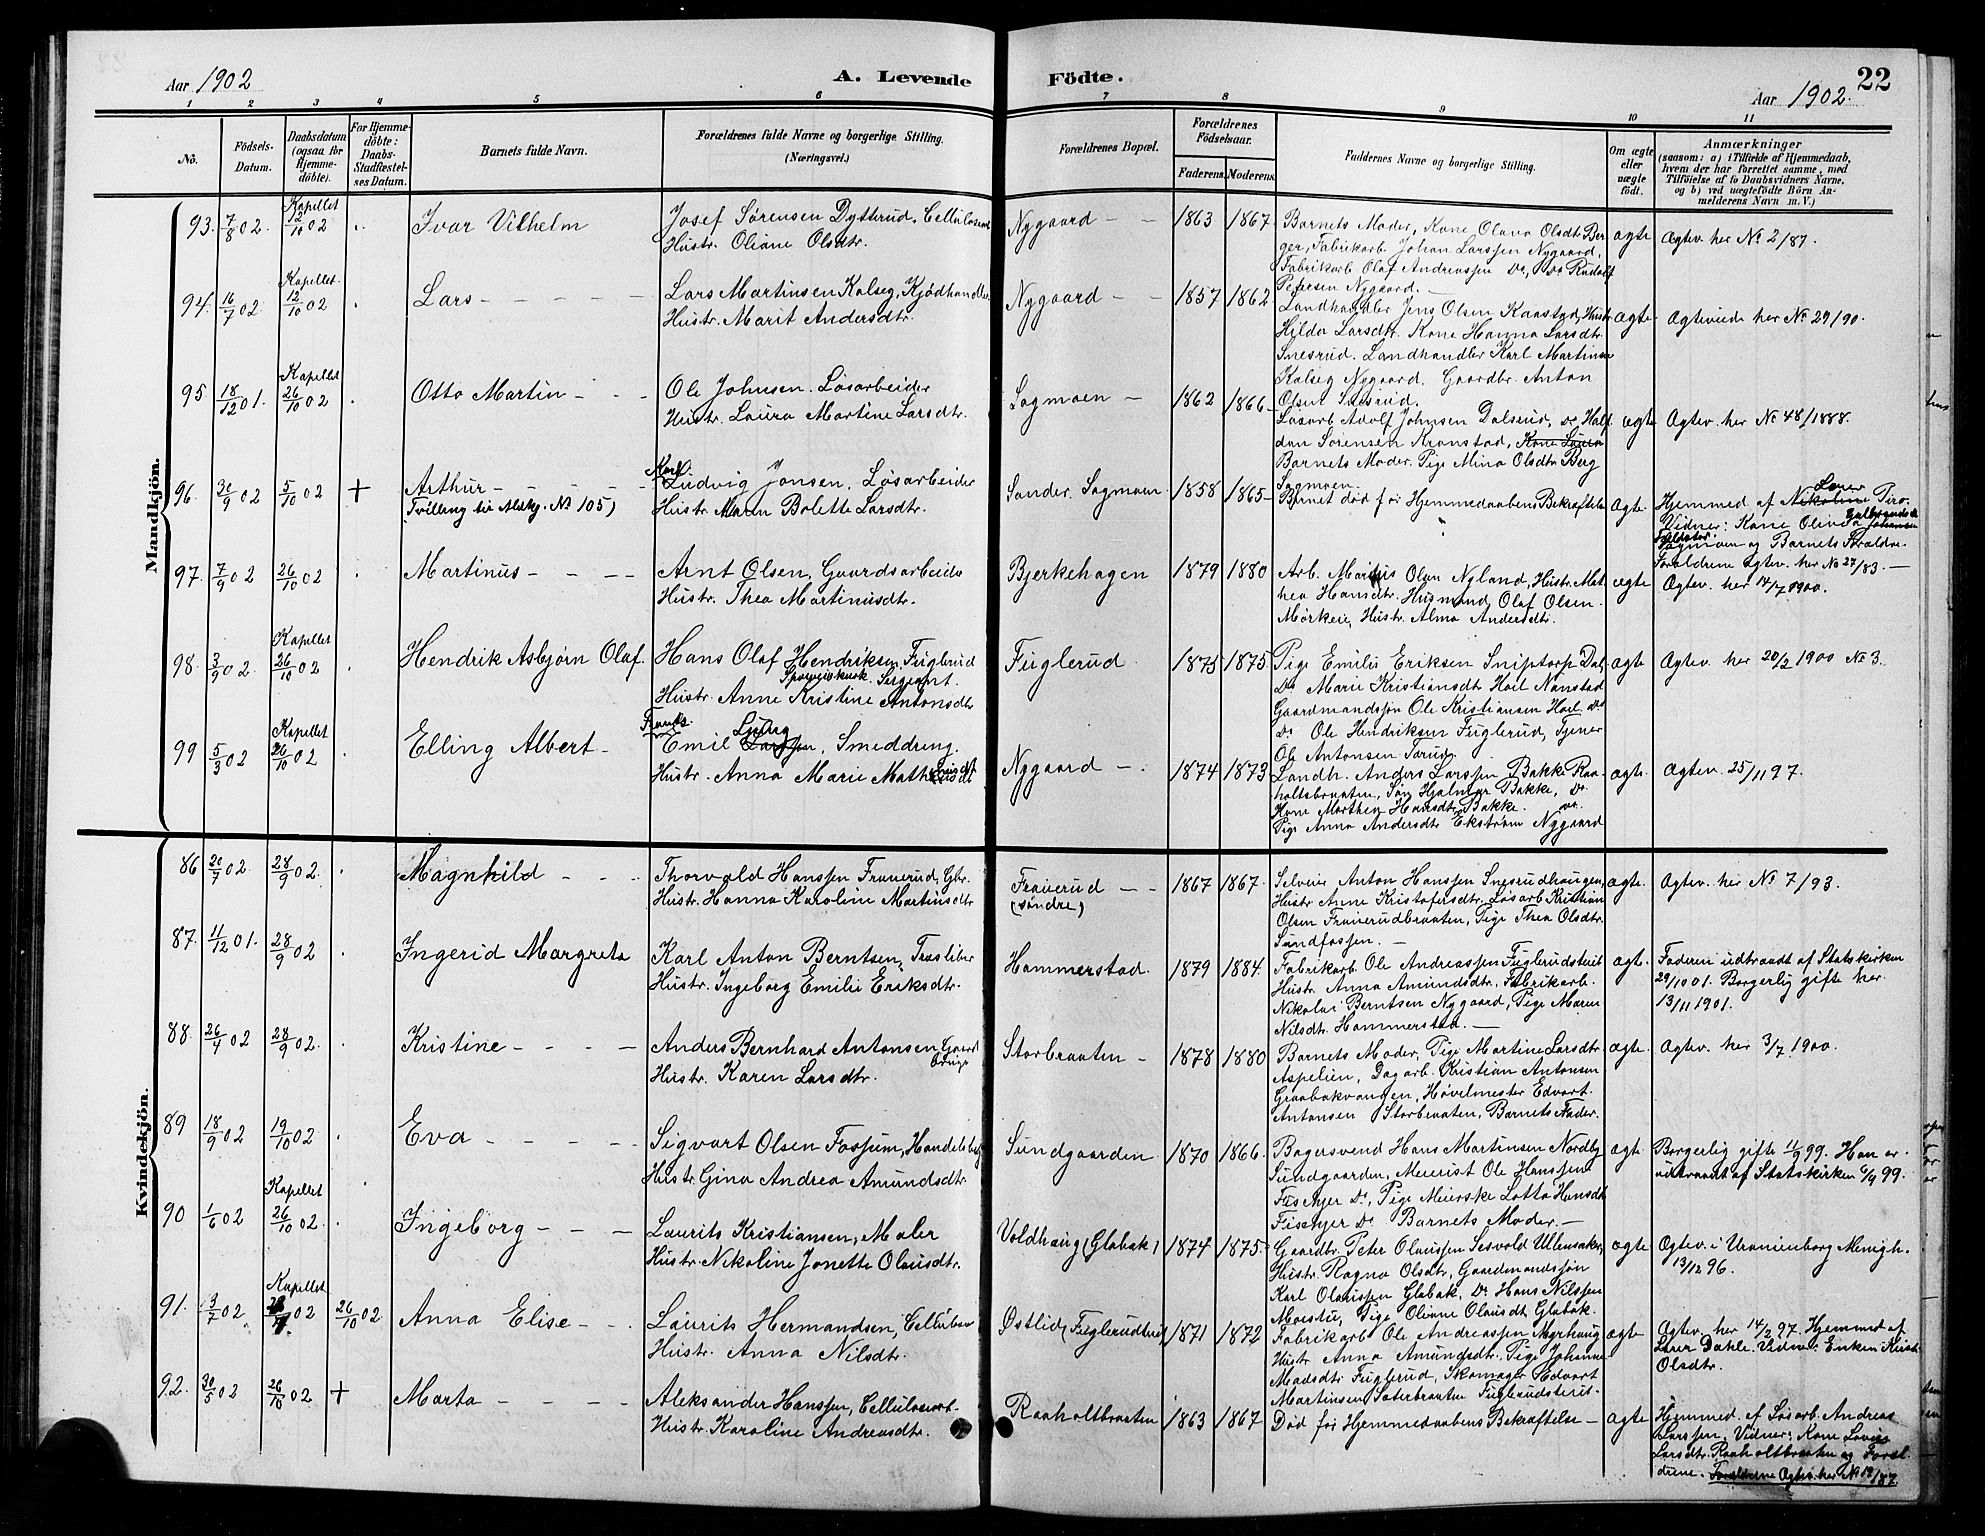 Aar 1902
A. Levende Födte.
22
Aar 1902.
1 2 3 4 5 6 7 8 9 10 11
Nö.
Födsels-Datum.
Daabsdatum (ogsaa for Hjemme-döbte).
For Hjemme-döbte: Daabs-Stadfæstel-ses Datum.
Barnets fulde Navn.
Forældrenes fulde Navne og borgerlige Stilling.
(Næringsvei.)
Forældrenes Bopæl.
Forældrenes Födselsaar.
Faderens. Moderens.
Faddernes Navne og borgerlige Stilling.
Om ægte eller uægte födt.
Anmærkninger
(saasom: a) i Tilfælde af Hjemmedaab,
hvem der har forrettet samme, med
Tilföielse af to Daabsvidners Navne,
og b) ved uegtefödte Börn An-
melderens Navn m. V.)
Mandkjön.
93. 7/8 02. Kapellet 12/10 02 Ivar Vilhelm
Josef Sørensen Dytterud, Cellulosearb
Hustr. Oliane Olsdtr.
Nygaard - - 1863 1867
Barnets Moder, Kone Olava Olsdtr Ber
ger, Fabrikarb. Johan Larssen Nygaard,
Fabrikarb Olaf Andreassen Do, Do Rudolf
Petersen Nygaard. -
ægte Ægtev. her No 2/87.
94. 16/7 02. Kapellet 12/10 02 Lars - - - - -
Lars Martinsen Kalseg, Kjødhandler
Hustr. Marit Andersdtr.
Nygaard - - 1857 1862
Landhandler Jens Olsen Kaastad, Hustr
Hilda Larsdtr. Kone Hanna Larsdtr.
Snesrud. Landhandler Karl Martinsen
Kalseg Nygaard, Gaardbr. Anton
Olsen Snesrud.
ægte Ægteviede her No 29/90.
95. 18/12 01. Kapellet 26/10 02 Otto Martin - - -
Ole Johnsen. Løsarbeider
Hustr. Laura Martine Larsdtr.
Sagmoen - 1862 1866
Løsarb Adolf Johnsen Dalsrud, Do Half
dan Sørensen Kronstad, Kone Laura
Barnets Moder. Pige Mina Olsdtr Berg
Sagmoen.
ægte Ægtev. her No 48/1888.
96. 30/9 02 5/10 02 + Arthur - - - - -
(Tvilling til Alskg. No 105)
Karl Ludvig Jonsen, Løsarbeider
Hustr. Maren Bolette Larsdtr.
Sander. Sagmoen 1858 1865
Barnet død før Hjemmedaabens Bekræftelse
Ægte.
Hjemmed af Nikoline Lærer Tiro.
Vidner: Kone Olivia Johansen
Sagmoen og Barnets Forældre.
Forældrene Ægtev. her No 27/83. -
97. 7/9 02 26/10 02 Martinus - - - -
Arnt Olsen, Gaardsarbeider
Hustr. Thea Martinusdtr.
Bjerkehagen 1879 1880
Arb. Marius Olsen Nyland, Hustr. Mat
hea Hansdtr. Husmand Olaf Olsen
Mørkeie, Hustr. Alma Andersdtr.
ægte Ægtev. her 14/7 1900.
98. 3/9 02 Kapellet 26/10 02 Hendrik Asbjørn Olaf.
Hans Olaf Hendriksen Fuglerud
Sergeant.
Hustr. Anne Kristine Antonsdtr
Fuglerud. 1875 1875
Pige Emilie Eriksen Sniptorp Dal
Do Marie Kristiansdtr Hoel Nanstad
Gaardmandssøn Ole Kristiansen Hoel Do
Do Ole Hendriksen Fuglerud, Tjener
Ole Antonsen Torud.
ægte Ægtev. her 20/2 1900 No 3.
99 5/3 02 Kapellet 26/10 02 Elling Albert -
Emil Larssen, Smeddreng.
Hustr. Anna Marie
Nygaard - 1874 1873
Landh. Anders Larssen Bakke Raa-
holtsbraaten, Søn Hjalmar Bakke, Do
Kone Marthea Hansdtr. Bakke. Do.
Pige Anna Andersdtr Ekstrøm Nygaard
ægte. Ægtev. 25/11 97.
Kvindekjön.
86 20/7 02 28/9 02. Magnhild - - -
Thorvald Hanssen Fraverud, Gbr.
Hustr. Hanna Karoline Martinsdtr
Fraverud - - (søndre) 1867 1867.
Selveier Anton Hanssen Snesrudhaugen,
Hustr Anne Kristofersdtr. Løsarb Kristian
Olsen Fraverudbraaten, Pige Thea Olsdtr.
Sundfossen. -
ægte. Ægtev. her No 7/93.
87. 11/12 01. 28/9 02 Ingerid Margreta
Karl Anton Berntsen, Træsliber
Hustr. Ingeborg Emilie Eriksdtr.
Hammerstad. 1879 1884.
Fabrikarb. Ole Andreassen Fuglerudsteit
Hustr. Anna Amundsdtr, Fabrikarb.
Nikolai Berntsen Nygaard, Pige Maren
Nilsdtr. Hammerstad. -
ægte. Faderen udtraadt af Statskirken
29/10 01. Borgerlig gifte her
13/11 1901.
88. 26/4 02 28/9 02. Kristine - - - -
Anders Bernhard Antonsen Gaard
Hustr. Karen Larsdtr.
Storbraaten - 1878 1880
Barnets Moder, Pige Martine Larsdtr
Aspelien, Dagarb. Kristian Antonsen
Graabakvangen, Høvelmester Edvart
Antonsen Storbraaten, Barnets Fader.
ægte. Ægtev. her 3/7 1900.
89 18/9 02 19/10 02 Eva - - - -
Sigvart Olsen Fossum, Handelsbetj
Hustr. Gina Andrea Amundsdtr.
Sundgaarden 1870 1866.
Bagersvend Hans Martinsen Nordby
Sundgaarden, Meierist Ole Hanssen
Do, Pige Meierske Lotta Hansdtr
Do Barnets Moder. -
ægte. Borgerlig gifte 11/9 99. Han er
udtraadt af Statskirken 6/9 99.
90 1/6 02 Kapellet 26/10 02. Ingeborg - - -
Laurits Kristiansen, Maler
Hustr. Nikoline Jonette Olausdtr.
Voldhaug (Glabak) 1874 1875
Gaardbr. Peter Olaussen Sesvold Ullensaker,
Hustr. Ragna Olsdtr, Gaardmandssøn
Karl Olaussen Glabak, Do Hans Nilssen
Moestu, Pige Oliane Olausdtr Glabak.
ægte Ægtev. i Uranienborg Menigh.
13/12 96.
91. 3/7 02. Kapellet 02 26/10 02 Anna Elise - - -
Laurits Hermandsen, Cellulose
Hustr. Anna Nilsdtr.
Østlid (Fuglerudteie) 1871 1872
Fabrikarb. Ole Andreassen Myrhaug
Hustr Anna Amundsdtr. Pige Johanne
Madsdtr Fuglerud, Skomager Edvart
Martinsen Sæterbraaten Fuglerudsteiet.
ægte Ægtev. her 14/2 97. Hjemmed af
Lærer Dahle. Vidner: Enken
Olsdtr.
92. 30/5 02 26/10 02 + Marta - - - -
Aleksander Hanssen, Cellulosearb.
Hustr. Karoline Andreasdtr.
Raaholtbraaten 1863 1867
Død før Hjemmedaabens Bekræftelse -
ægte Hjemmed. af Løsarb. Andreas
Larssen. Vidner: Kone Lovise
Larsdtr. Raaholtbraaten og Foræl-
drene. Forældrene Ægtev. her No 19/87.